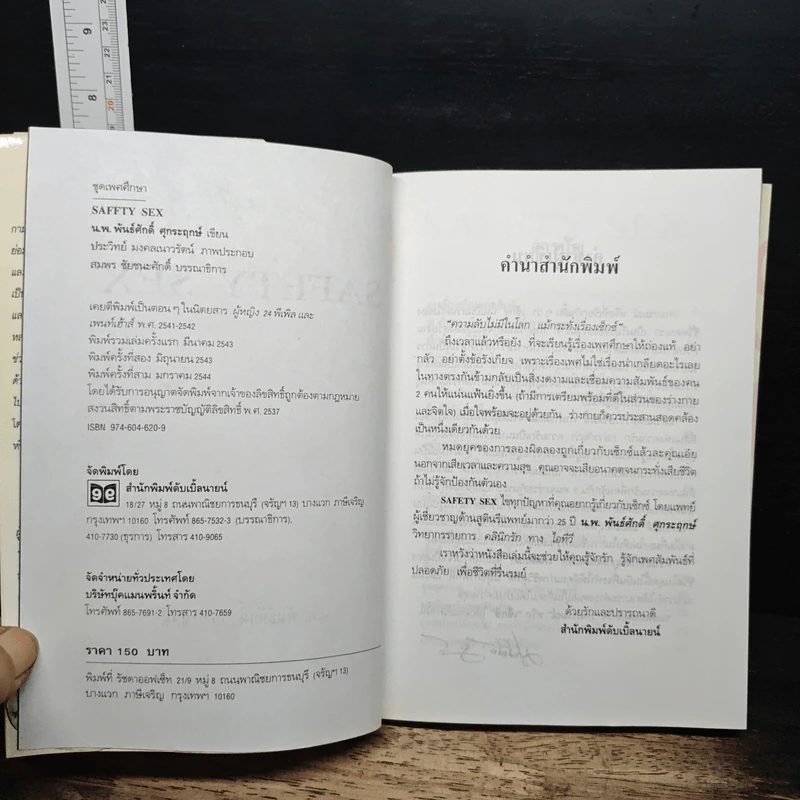 9
8
23
22
21
20
19
ชุดเพศศึกษา
SAFFTY SEX
น.พ. พันธ์ศักดิ์ ศุกระฤกษ์ เขียน
ประวิทย์ มงคลเนาวรัตน์ ภาพประกอบ
สมพร ชัยชนะศักดิ์ บรรณาธิการ
เคยตีพิมพ์เป็นตอน ๆ ในนิตยสาร ผู้หญิง 24 พีเพิล และ
เพนท์เฮ้าส์ พ.ศ. 2541-2542
พิมพ์รวมเล่มครั้งแรก มีนาคม 2543
พิมพ์ครั้งที่สอง มิถุนายน 2543
พิมพ์ครั้งที่สาม มกราคม 2544
โดยได้รับการอนุญาตจัดพิมพ์จากเจ้าของลิขสิทธิ์ถูกต้องตามกฎหมาย
สงวนสิทธิ์ตามพระราชบัญญัติลิขสิทธิ์ พ.ศ. 2537
ISBN 974-604-620-9
จัดพิมพ์โดย
สำนักพิมพ์ดับเบิ้ลนายน์
18/27 หมู่ 8 ถนนพาณิชยการธนบุรี (จรัญฯ 13) บางแวก ภาษีเจริญ
กรุงเทพฯ 10160 โทรศัพท์ 865-7532-3 (บรรณาธิการ).
410-7730 (ธุรการ) โทรสาร 410-9065
จัดจำหน่ายทั่วประเทศโดย
บริษัทบุ๊คแมนพริ้นท์ จำกัด
โทรศัพท์ 865-7691-2 โทรสาร 410-7659
ราคา 150 บาท
พิมพ์ที่ รัชดาออฟเซ็ท 21/9 หมู่ 8 ถนนพาณิชยการธนบุรี (จรัญฯ 13)
บางแวก ภาษีเจริญ กรุงเทพฯ 10160
คำนำสำนักพิมพ์
"ความลับไม่มีในโลก แม้กระทั่งเรื่องเซ็กซ์"
ถึงเวลาแล้วหรือยัง ที่จะเรียนรู้เรื่องเพศศึกษาให้ถ่องแท้ อย่า
กลัว อย่าตั้งข้อรังเกียจ เพราะเรื่องเพศไม่ใช่เรื่องน่าเกลียดอะไรเลย
ในทางตรงกันข้ามกลับเป็นสิ่งงดงามและเชื่อมความสัมพันธ์ของคน
2 คนให้แน่นแฟ้นยิ่งขึ้น (ถ้ามีการเตรียมพร้อมที่ดีในส่วนของร่างกาย
และจิตใจ) เมื่อใจพร้อมจะอยู่ด้วยกัน ร่างกายก็ควรประสานสอดคล้อง
เป็นหนึ่งเดียวกันด้วย
หมดยุคของการลองผิดลองถูกเกี่ยวกับเซ็กซ์แล้วละคุณเอ๋ย
นอกจากเสียเวลาและความสุข คุณอาจจะเสียอนาคตจนกระทั่งเสียชีวิต
ถ้าไม่รู้จักป้องกันตัวเอง
SAFETY SEX ไขทุกปัญหาที่คุณอยากรู้เกี่ยวกับเซ็กซ์ โดยแพทย์
ผู้เชี่ยวชาญด้านสูตินรีแพทย์มากว่า 25 ปี น.พ. พันธ์ศักดิ์ ศุกระฤกษ์
วิทยากรรายการ คลินิกรัก ทาง ไอทีวี
เราหวังว่าหนังสือเล่มนี้จะช่วยให้คุณรู้จักรัก รู้จักเพศสัมพันธ์ที่
ปลอดภัย เพื่อชีวิตที่รื่นรมย์
ด้วยรักและปรารถนาดี
สำนักพิมพ์ดับเบิ้ลนายน์